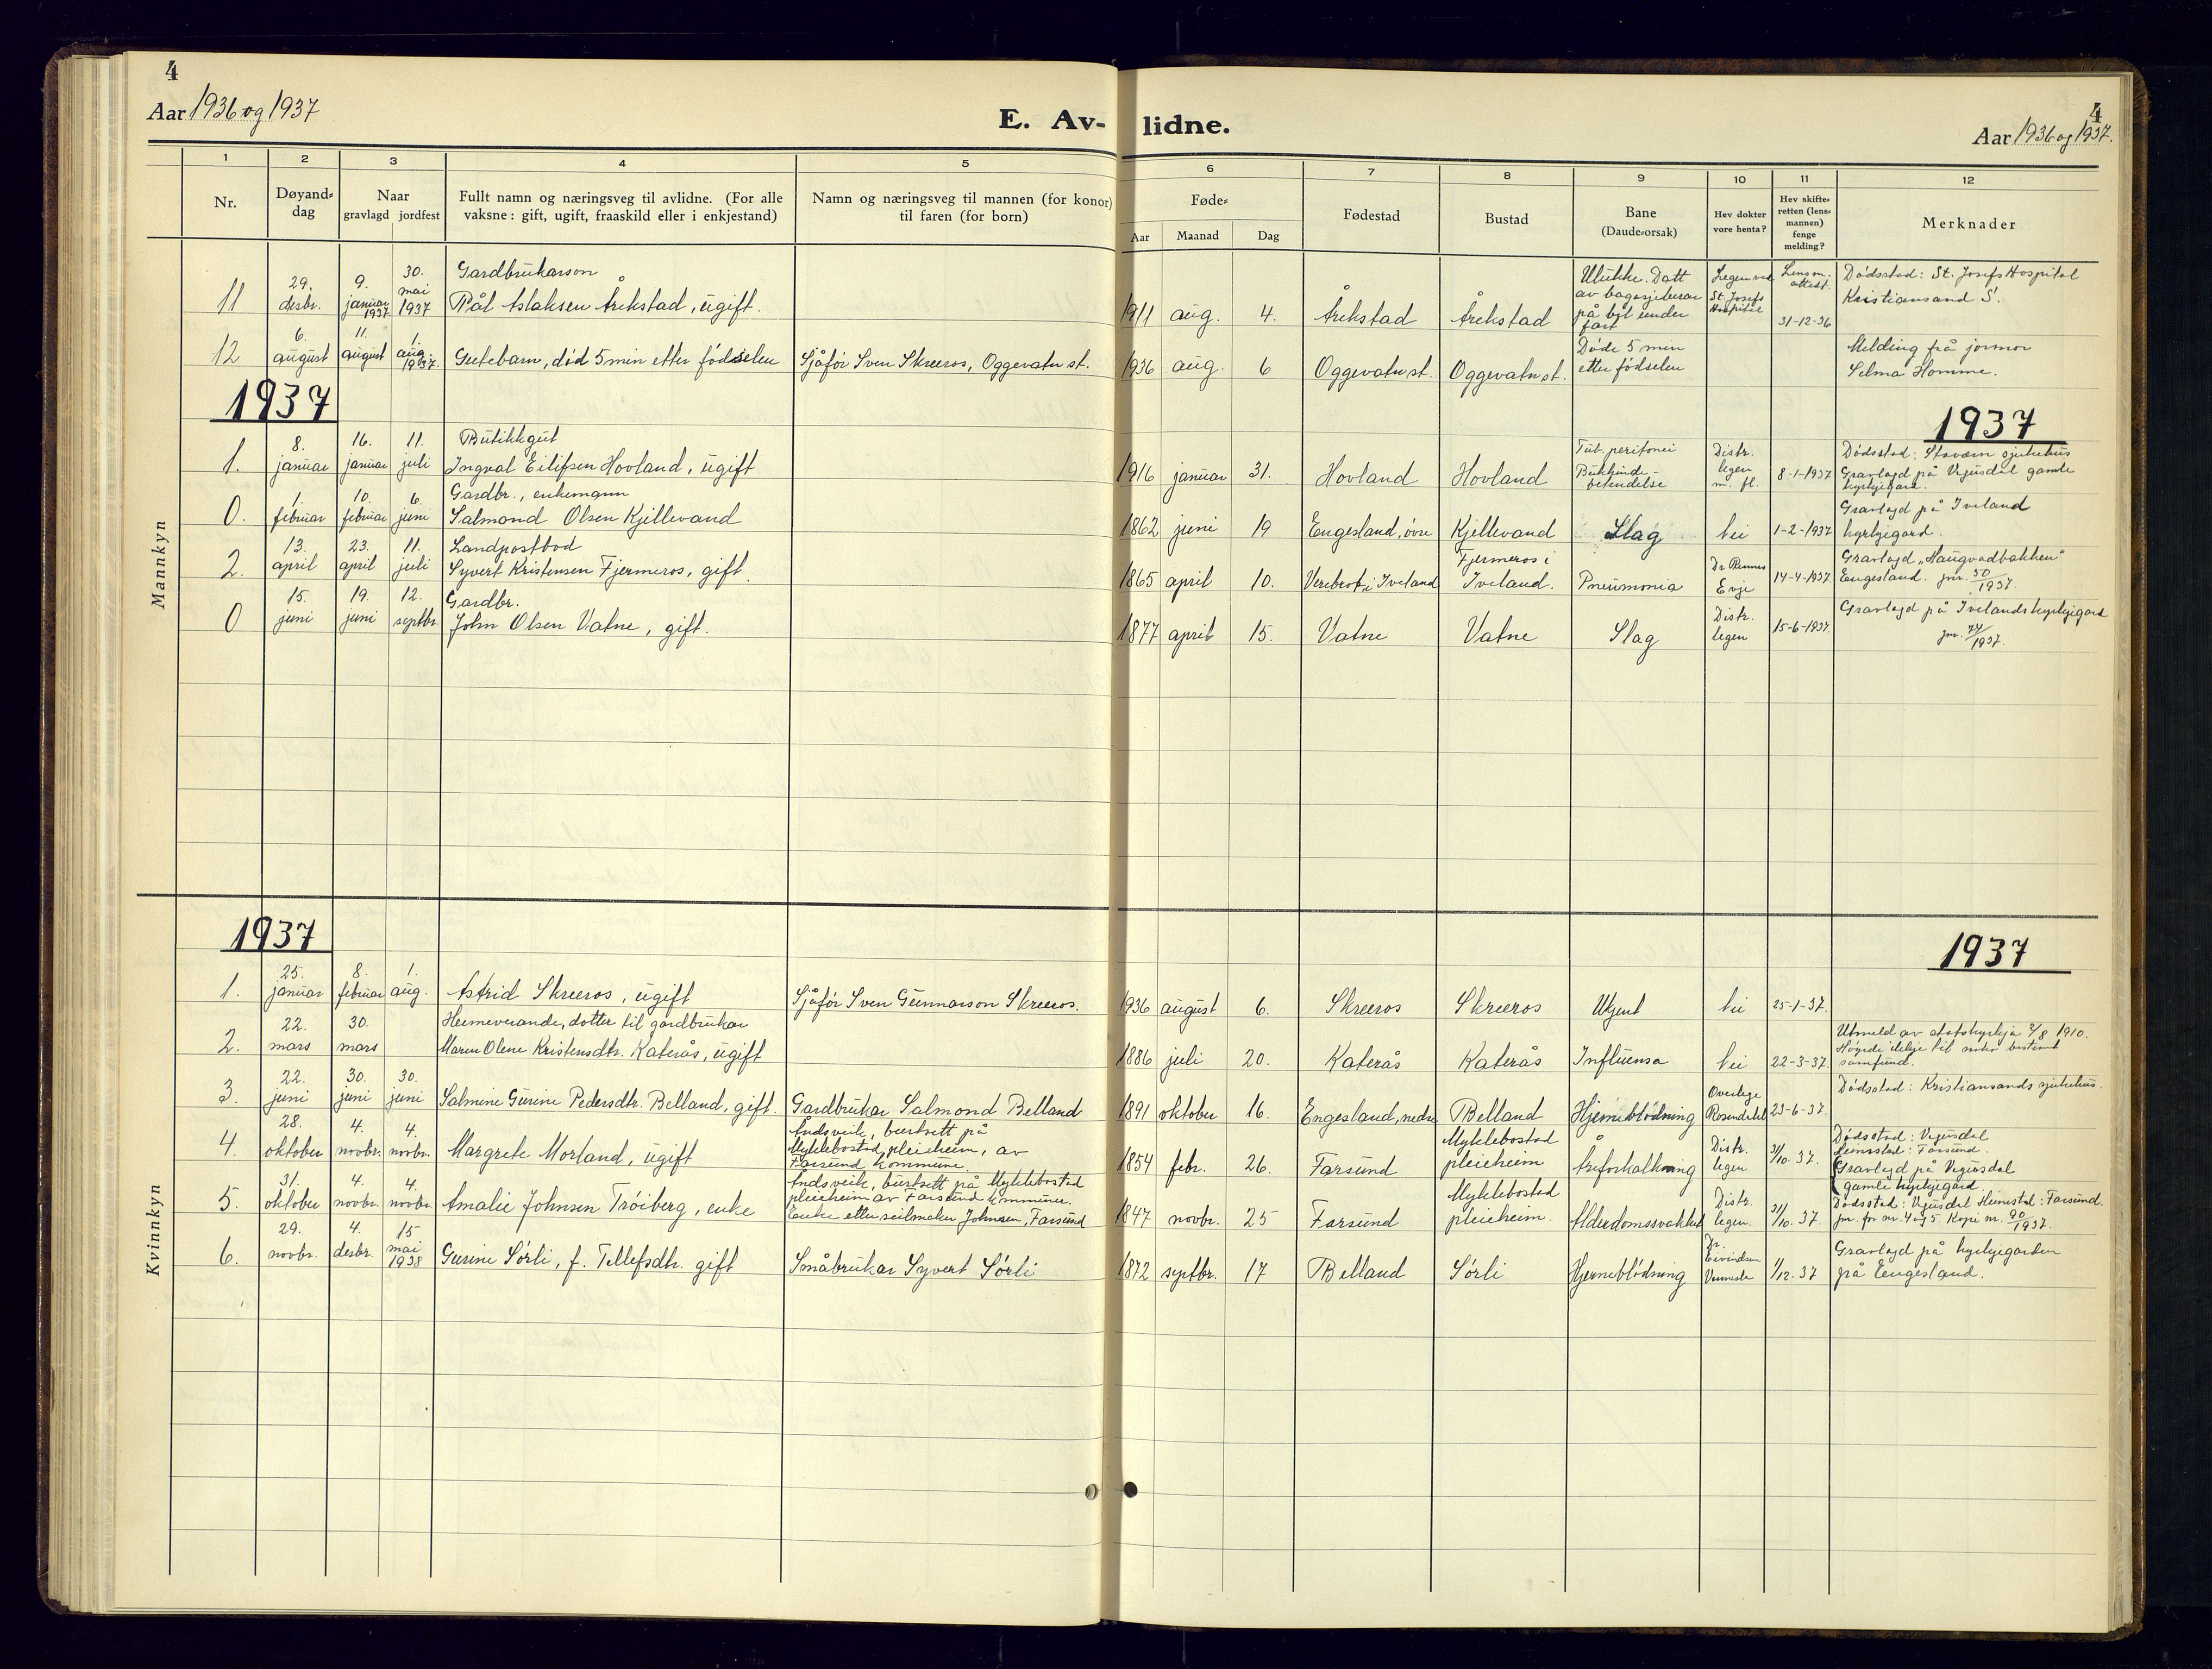 4
Aar 1936 og 1937
E. Av-
lidne.
4
Aar 1936 og 1937.
1 2 3 4 5 6 7 8 9 10 11 12
Nr.
Døyand-
dag
Naar
gravlagd jordfest
Fullt namn og næringsveg til avlidne. (For alle
vaksne: gift, ugift, fraaskild eller i enkjestand)
Namn og næringsveg til mannen (for konor)
til faren (for born)
Føde-
Aar Maanad Dag
Fødestad
Bustad
Bane
(Daude-orsak)
Hev dokter
vore henta?
Hev skifte-
retten (lens-
mannen)
fenge
melding?
Merknader
Mannkyn
11
29.
desbr.
9.
januar
1937
30.
mai
1937
Gardbrukarson
Pål Aslaksen Årekstad, ugift.
1911 aug. 4. Årekstad Årekstad
Ulukke. Datt
av bagasjeberar
på bil under
fart
St. Josefs
Hospital
Lensm.
attest.
31-12-36
Dødsstad: St. Josefs Hospital
Kristiansand S.
12
6.
august
11.
august
1.
aug.
1937.
Gutebarn, død 5 min etter fødselen
Sjåfør Sven Skreros, Oggevatn st.
1936 aug. 6 Oggevatn st. Oggevatn st.
Døde 5 min
etter fødselen
Melding frå jormor
Selma Homme.
1937
1937
1.
8.
januar
16.
januar
11.
juli
Butikkgut
Ingval Eilifsen Hovland, ugift
1916 januar 31. Hovland Hovland
Tub. peritonei
Bukhinde-
betendelse
Distr.
legen
m. fl.
8-1-1937
Dødsstad: Stavern sjukehus
Gravlagd på Vegusdal gamle
kyrkjegard.
0.
1.
februar
10.
februar
6.
juni
Gardbr., enkemann
Salmond Olsen Kjillevand
1862 juni 19 Engesland, øvre Kjellevand Slag Nei 1-2-1937
Gravlagd på Iveland
kyrkjegard.
2.
13.
april
23.
april
11.
juli
Landpostbod
Syvert Kristensen Fjermeros, gift.
1865 april 10. Verebrot i Iveland
Fjermeros i
Iveland.
Pneumonia
Evje
14-4-1937.
Gravlagd "Haugvadbakken"
Engesland. jnr. 50/1937.
0
15.
juni
19.
juni
12.
septbr.
Gardbr.
John Olsen Vatne, gift.
1877 april 15. Vatne Vatne Slag
Distr.
legen
15-6-1937.
Gravlagd på Ivelands kyrkjegard
jnr. 74/1937.
Kvinnkyn
1937
1937
1.
25.
januar
8.
februar
1.
aug.
Astrid Skreros, ugift
Sjåfør Sven Gunnarson Skreros.
1936 august 6. Skreros Skreros Ukjent Nei 25-1-37.
2.
22.
mars
30.
mars
Heimeverande, dotter til gardbrukar
Maren Olene Kristensdtr. Katerås, ugift
1886 juli 20. Katerås Katerås Influensa Nei 22-3-37.
Utmeld av statskyrkja 2/8 1910.
Høyrde ikkje til noko bestemt
samfund.
3.
22.
juni
30.
juni
30.
juni
Salmine Gurine Pedersdtr. Belland, gift.
Gardbrukar Salmond Belland
1891 oktober 16. Engesland, nedre Belland Hjerneblødning
Overlege
Rosendahl
23-6-37.
Dødsstad: Kristiansands sjukehus.
4.
28.
oktober
4.
novbr.
4.
novbr.
Margrete Morland, ugift
Åndsveik, burtsett på
Myklebostad pleieheim, av
Farsund kommune.
1854 febr. 26. Farsund
Myklebostad
pleieheim
Åreforkalkning
Distr.
legen
31/10. 37.
Dødsstad: Vegusdal
Heimstad: Farsund.
Gravlagd på Vegusdal
gamle kyrkjegard.
5.
31.
oktober
4.
novbr.
4.
novbr.
Amalie Johnsen Trøiberg, enke
Åndsveik, burtsett på Myklebostad
pleieheim av Farsund kommune.
Enke etter seilmaker Johnsen, Farsund
1847 novbr. 25 Farsund
Myklebostad
pleieheim.
Alderdomssvakhet
Distr.
legen.
31/10. 37.
Dødsstad: Vegusdal Heimstad: Farsund.
jnr. for nr. 4 og 5 Kopi nr. 90/1937.
6.
29.
novbr.
4.
desbr.
15
mai
1938
Gurine Sørli, f. Tellefsdtr. gift
Småbrukar Syvert Sørli
1872 septbr. 17 Belland Sørli Hjerneblødning
Dr.
Eivindson
Vennesla
1/12. 37
Gravlagd på kyrkjegarden
på Engesland.